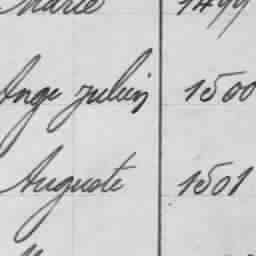 Marie 1499
Ange Julien 1500
Auguste 1501